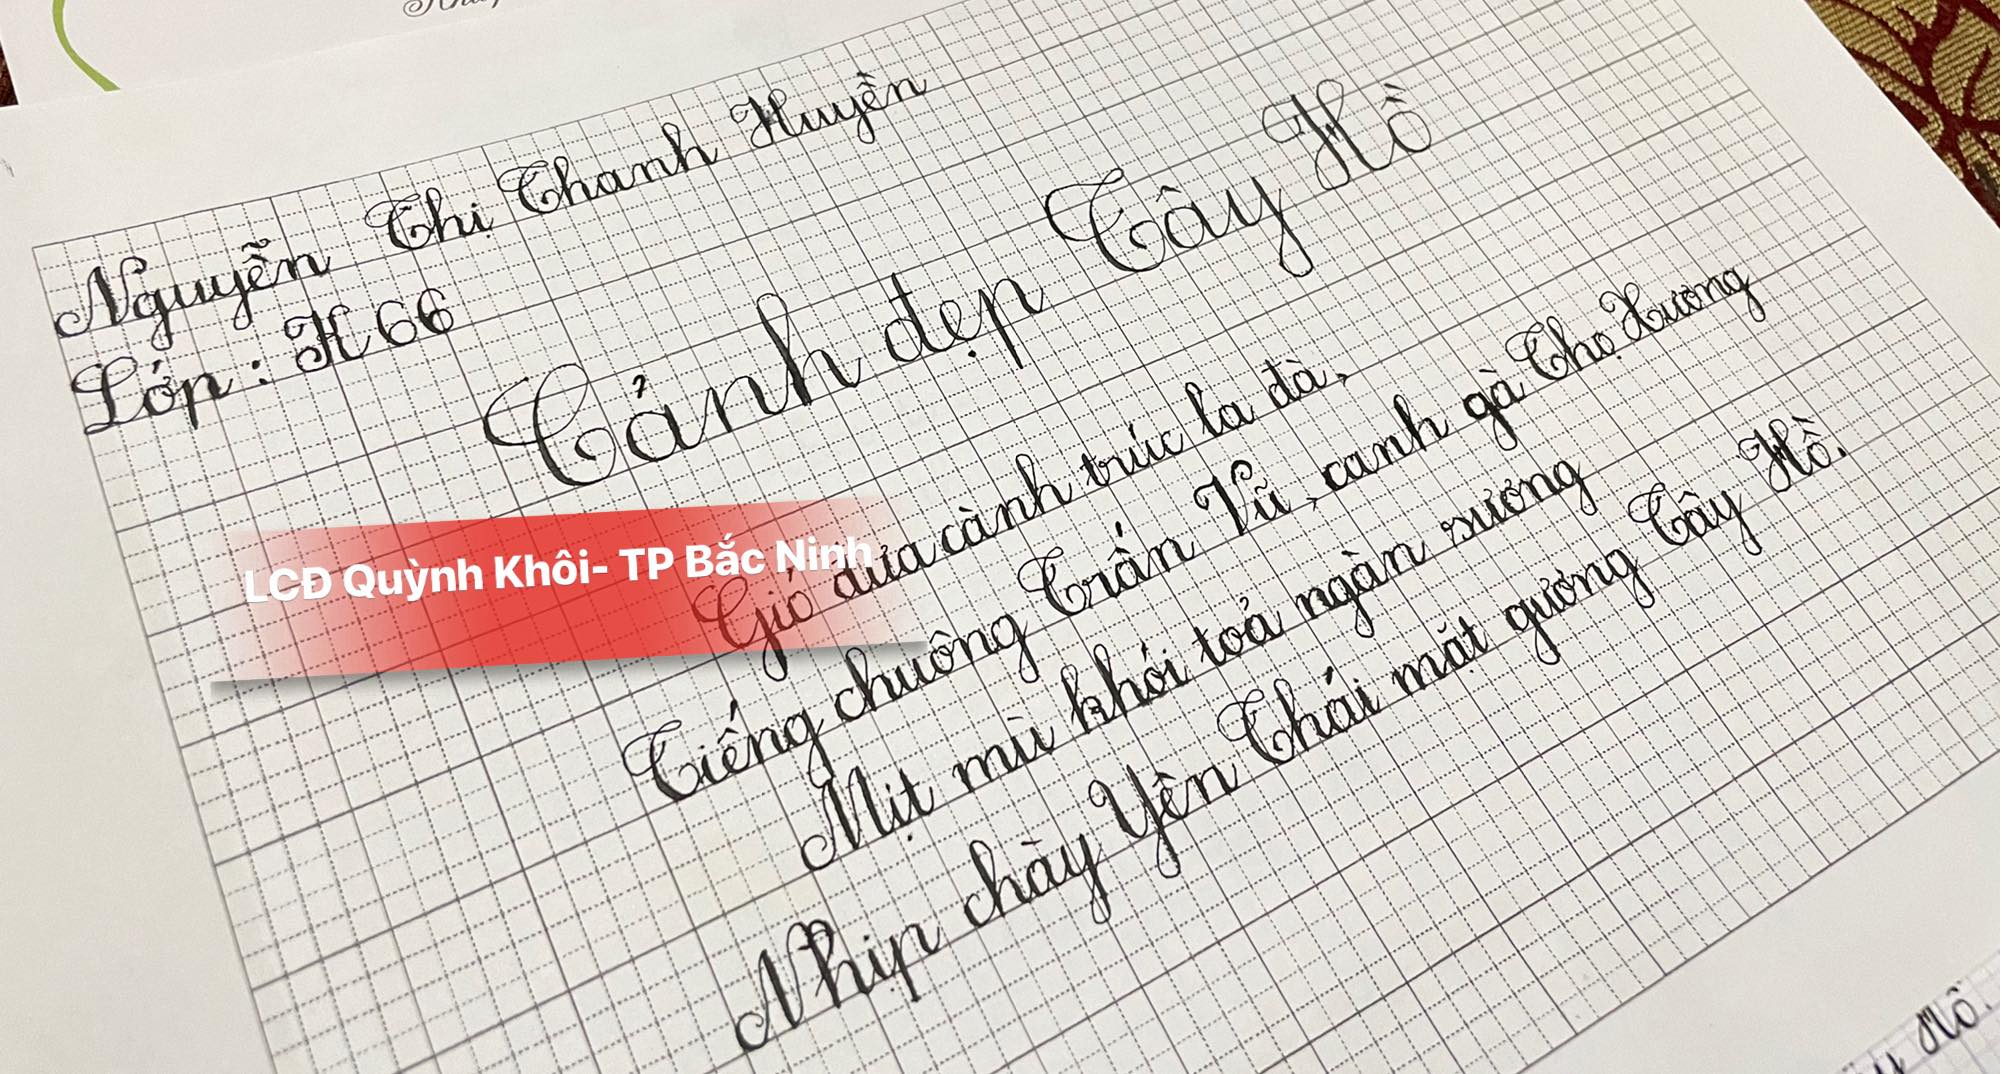 Nguyễn Thị Thanh Huyền
Lớp: K66
Cảnh đẹp Tây Hồ
Gió đưa cành trúc la đà,
Tiếng chuông Trấn Vũ, canh gà Thọ Xương
Mịt mù khói toả ngàn sương
Nhịp chày Yên Thái mặt gương Tây Hồ.
LCĐ Quỳnh Khôi- TP Bắc Ninh